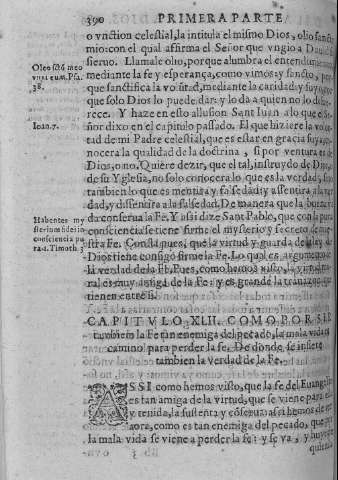 390 PRIMERA PARTE
o vnction celestial, la intitula el mismo Dios, olio sancto
mio: con el qual affirma el Señor que vngio a Dauid su
sieruo. Llamale olio, porque alumbra el entendimiento
mediante la fe y esperança, como vimos: y sancto, porque
que sanctifica la volũtad, mediante la caridad, y suyo, porque
que solo Dios lo puede dar: y lo da a quien no lo
rece. Y haze en esto allusion Sant Iuan a lo que el Se-
ñor dixo en el capitulo passado. El que hiziere la volun
tad de mi Padre celestial, que es estar en gracia suya, co
nocera la qualidad de la doctrina, si por ventura es de
Dios, o no. Quiere dezir, que el tal, instruydo de Dios
de su Yglesia, no solo conocera lo que es la verdad,
tambien lo que es mentira y falsedad: y assentira a la ver
dad, y dissentira a la falsedad. De manera que la buena
vida conserua la Fe. Y assi dize Sant Pablo, que con pura
consciencia se tiene firme el mysterio y secreto de
stra Fe. Consta pues, que la virtud y guarda de la ley de
Dios tiene consigo firme la Fe. Lo qual es argumento de
la verdad de la Fe. Pues, como hemos visto, la
ral es muy amiga de la Fe: y es grande la trauazon que
tienen entre si.
Oleo sctõ meo
vnxi eum. Psa.
38.
Ioan. 7.
Habentes my
sterium fidei in
consciencia pu
ra. 1. Timoth. 3
CAPITVLO. XLII. COMO POR SER
tambien la Fe tan enemiga del peccado, la mala vida es
camino para perder la fe. De donde se infiere
tambien la verdad de la Fe.
ASSI como hemos visto, que la fe del Euangelio
es tan amiga de la virtud, que se viene para
y venida, la sustenta y cõserua: assi hemos de
aora, como es tan enemiga del peccado, que por
la mala vida se viene a perder la fe: y se va, y huye